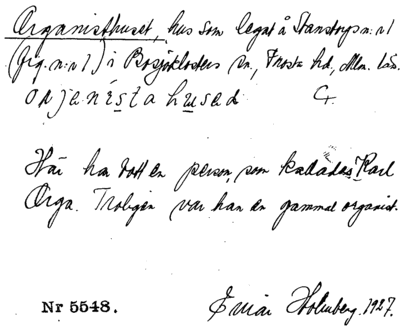 Organisthuset, hus som legat å Stanstorps n:r 1
(frg. n:r 1) i Bosjöklosters sn., Frosta hd, Mlm. län.
orjanistahused C.
Här har bott en person, som kallades Karl
Orga. Troligen var han en gammal organist.
Nr 5548. Einar Holmberg. 1927.